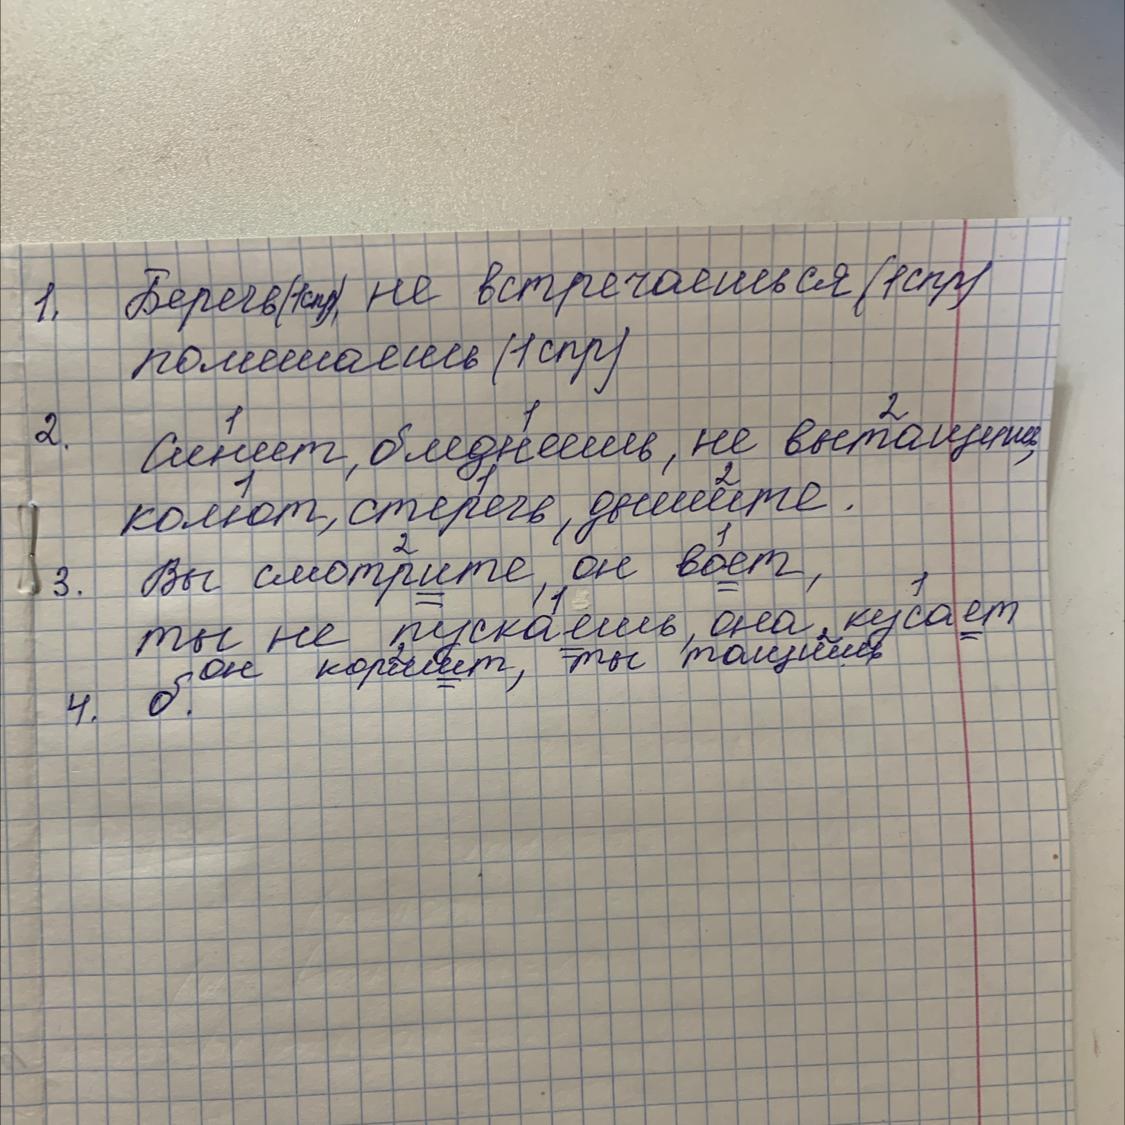 1. Беречь (1спр), не встречаешься (1спр)
помешаешь (1спр)
2. Синеет, бледнеешь, не вытащишь,
колют, стеречь, дышите.
3. Вы смотрите, он воет,
ты не пускаешь, она кусает
он кормит, ты тащишь
4. б.